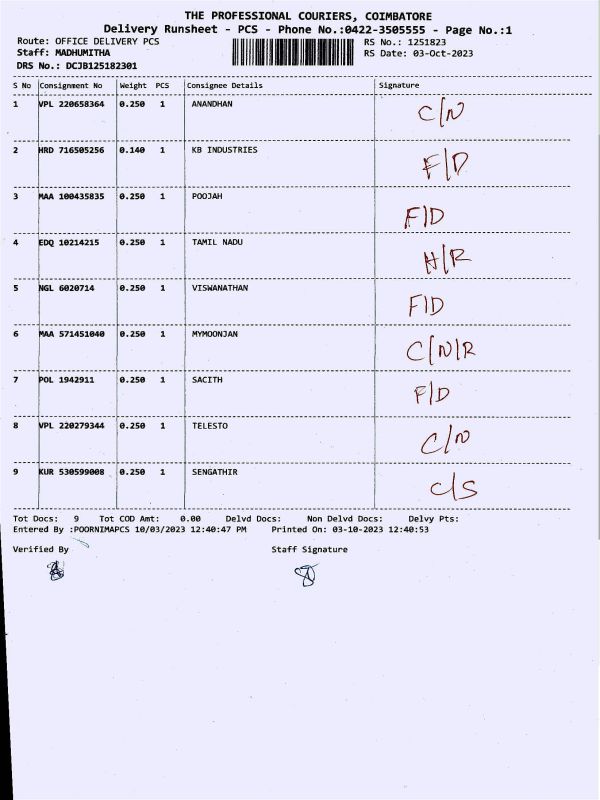 THE PROFESSIONAL COURIERS, COIMBATORE
Delivery Runsheet - PCS - Phone No.:0422-3505555 - Page No.:1
Route: OFFICE DELIVERY PCS RS No.: 1251823
Staff: MADHUMITHA RS Date: 03-Oct-2023
DRS No.: DCJB125182301
S No Consignment No Weight PCS Consignee Details Signature
1 VPL 220658364 0.250 1 ANANDHAN C/N
2 HRD 716505256 0.140 1 KB INDUSTRIES F/D
3 MAA 100435835 0.250 1 POOJAH F/D
4 EDQ 10214215 0.250 1 TAMIL NADU H/R
5 NGL 6020714 0.250 1 VISWANATHAN F/D
6 MAA 571451040 0.250 1 MYMOONJAN C/N/R
7 POL 1942911 0.250 1 SACITH F/D
8 VPL 220279344 0.250 1 TELESTO C/N
9 KUR 530599008 0.250 1 SENGATHIR C/S
Tot Docs: 9 Tot COD Amt: 0.00 Delvd Docs: Non Delvd Docs: Delvy Pts:
Entered By :POORNIMAPCS 10/03/2023 12:40:47 PM Printed On: 03-10-2023 12:40:53
Verified By Staff Signature